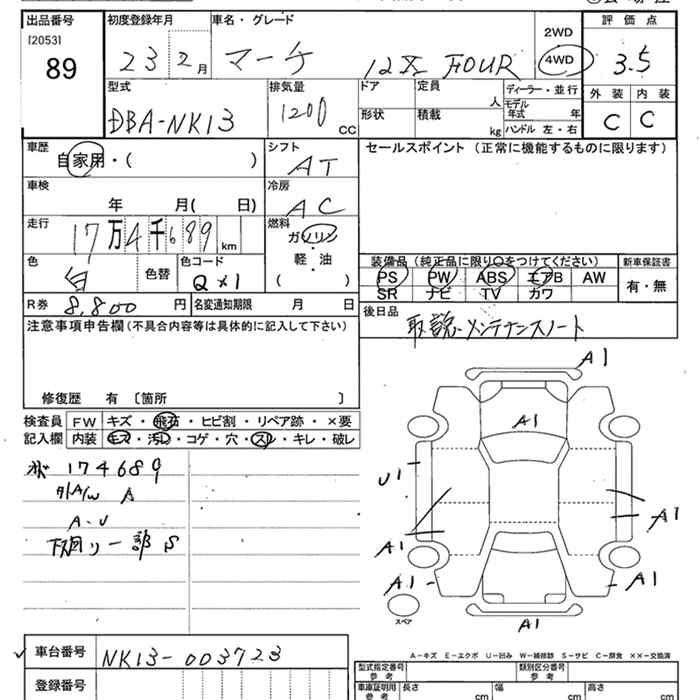 出品番号 初度登録年月 車名・グレード 評価点
[2053]
89
23 2月 マーチ 12X FOUR 2WD 4WD 3.5
型式 排気量 ドア 定員 ディーラー・並行 外装 内装
DBA-NK13 1200 CC 人 モデル年式 年 C C
形状 積載 kg ハンドル 左・右
車歴 シフト セールスポイント (正常に機能するものに限ります)
自家用・( ) AT
車検 冷房
年 月( 日) AC
走行 燃料
17万4千689km ガソリン・
軽・油
( )
装備品 (純正品に限り○をつけてください) 新車保証書
色 白 色替 色コード QX1
PS PW ABS エアB AW 有・無
SR ナビ TV カワ
R券 8,800 円 名変通知期限 月 日
後日品 取説・メンテナンスノート
注意事項申告欄(不具合内容等は具体的に記入して下さい)
修復歴 有 〔箇所 〕
検査員 FW キズ・飛石・ヒビ割・リペア跡・×要
記入欄 内装 キズ・汚レ・コゲ・穴・スレ・キレ・破レ
174689
外A/W A
A-U
下廻り一部S
A1
A1
U1
A1
A1
A1
A1
A1
スペア
A-キズ E-エクボ U-凹み W-補修跡 S-サビ C-腐食 ××-交換済
車台番号 NK13-003723
登録番号
型式指定番号 参考 類別区分番号 参考
車庫証明用 参考 長さ cm 幅 cm 高さ cm